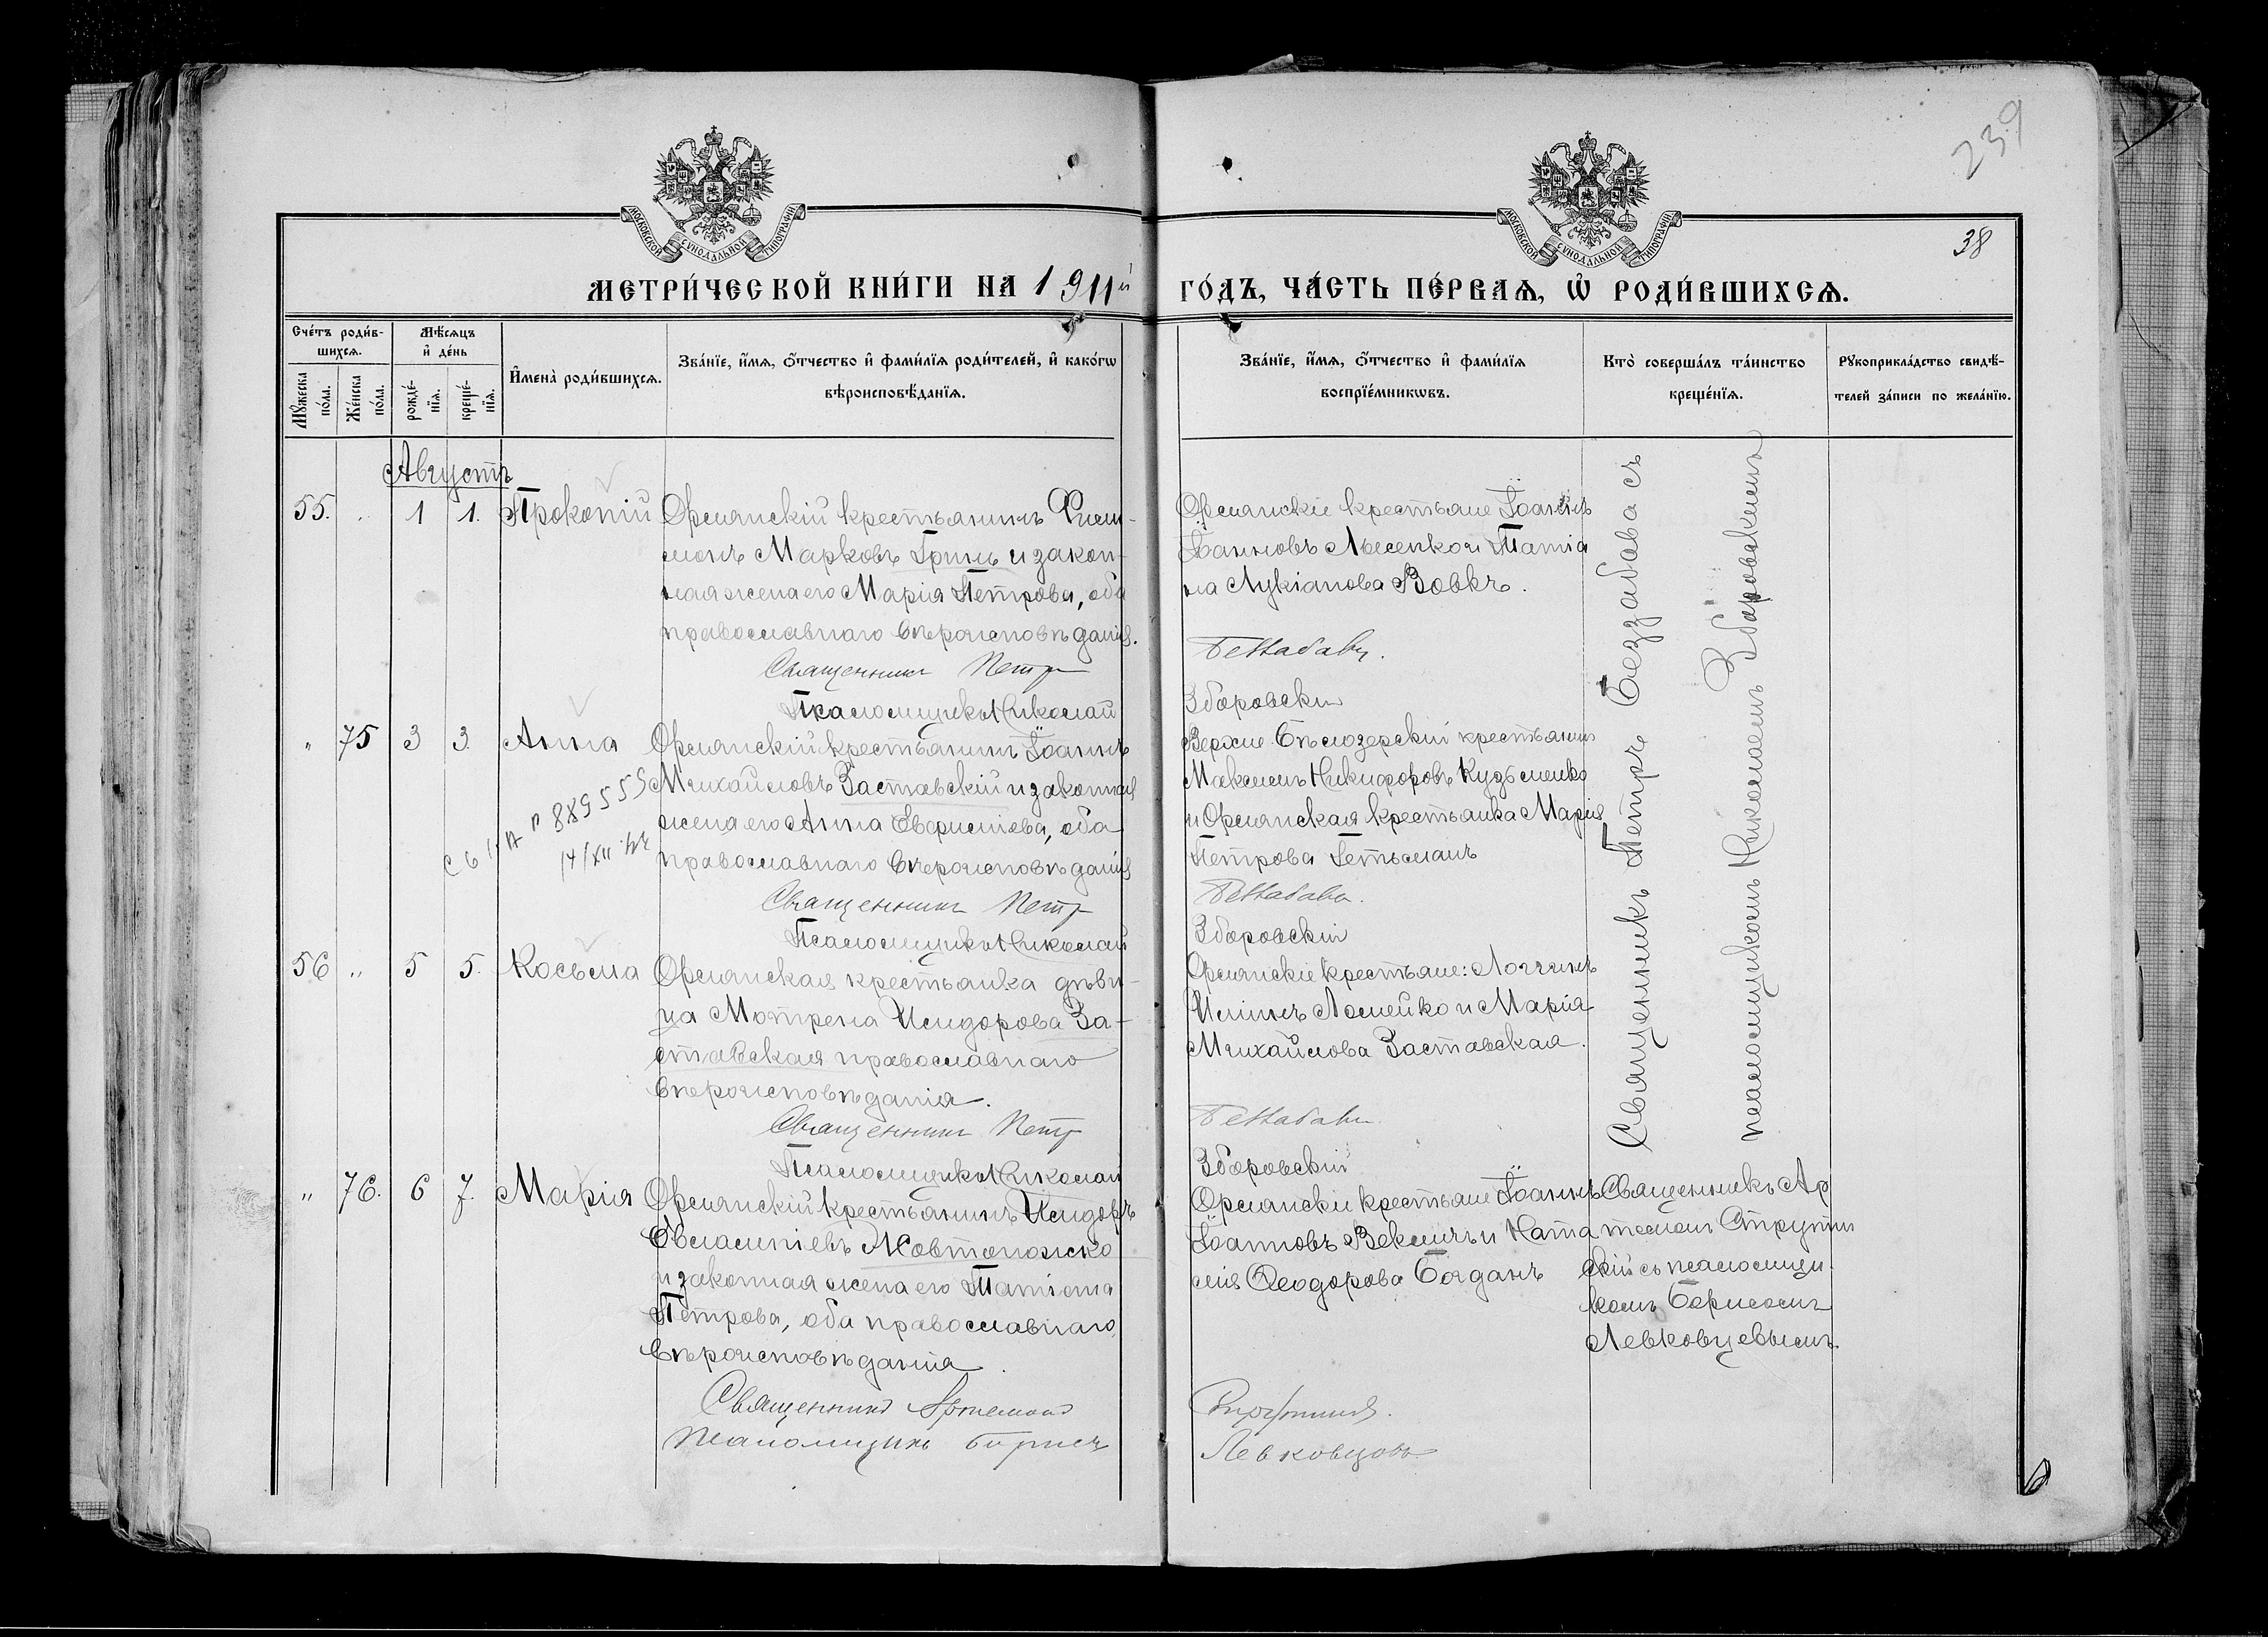 239
38
МОСКОВСКОЙ СѴНОДАЛЬНОЙ ТИПОГРАФІИ
МОСКОВСКОЙ СѴНОДАЛЬНОЙ ТИПОГРАФІИ
МЕТРИ́ЧЕСКОЙ КНИ́ГИ НА 1911й ГО́ДЪ, ЧА́СТЬ ПЕ́РВАѦ, Ѡ҆ РОДИ́ВШИХСѦ.
Сче́тъ роди́в-
шихсѧ.
Мꙋжеска по́ла.
Же́нска по́ла.
Мѣ́сѧцъ
и҆ де́нь
рожде́-
нїѧ.
креще́-
нїѧ.
И҆мена̀ роди́вшихсѧ.
Зва́нїе, и҆́мѧ, ѻ҆́тчество и҆ фами́лїѧ роди́телей, и҆ како́гѡ
вѣроисповѣ́данїѧ.
Зва́нїе, и҆́мѧ, ѻ҆́тчество и҆ фами́лїѧ
воспрїе́мникѡвъ.
Кто̀ соверша́лъ та́инство
креще́нїѧ.
Рꙋкоприкла́дство свидѣ́-
телей за́писи по жела́нїю.
Августъ
55. 1 1. Прокопій
Орлянскій крестьянинъ Фили-
монъ Марковъ Гринь и закон-
ная жена его Марія Петрова, оба
православнаго вѣроисповѣданія.
Священникъ Петр
Псаломщикъ Николай
Орлянскіе крестьяне Іоаннъ
Іоанновъ Лысенко и Татіа
на Лукіанова Вовкъ.
Беззабава.
Зборовскій
Священникъ Петръ Беззабава съ
псаломщикомъ Николаемъ Зборовскимъ
" 75 3 3. Анна
Орлянскій крестьянинъ Іоаннъ
Михайловъ Заставскій и законная
жена его Анна Евфимиева, оба
православнаго вѣроисповѣданія
889555
14/XII
Священникъ Петр
Псаломщикъ Николай
Верхне-Бѣлозерскій крестьянинъ
Максимъ Никифоровъ Кузьменко
и Орлянская крестьянка Марія
Петрова Гетьманъ
Беззабава.
Зборовскій
56 " 5 5. Косьма
Орлянская крестьянка дѣви-
ца Мотрена Исидорова За-
ставская православнаго
вѣроисповѣданія.
Священникъ Петр
Псаломщикъ Николай
Орлянскіе крестьяне: Логгинъ
Иліинъ Ломейко и Марія
Михайлова Заставская.
Беззабава.
Зборовскій
" 76. 6 7. Марія
Орлянскій крестьянинъ Исидоръ
Евлампіевъ Жовтоножко
и законная жена его Татіана
Петрова, оба православнаго
вѣроисповѣданія.
Священникъ Артемонъ
Псаломщикъ Борисъ
Орлянскіе крестьяне Іоаннъ
Іоанновъ Векличъ и Ната
лія Ѳеодорова Богданъ
Священникъ Ар
темонъ Струтин
скій съ псаломщи-
комъ Борисомъ
Левковцевымъ.
Левковцовъ